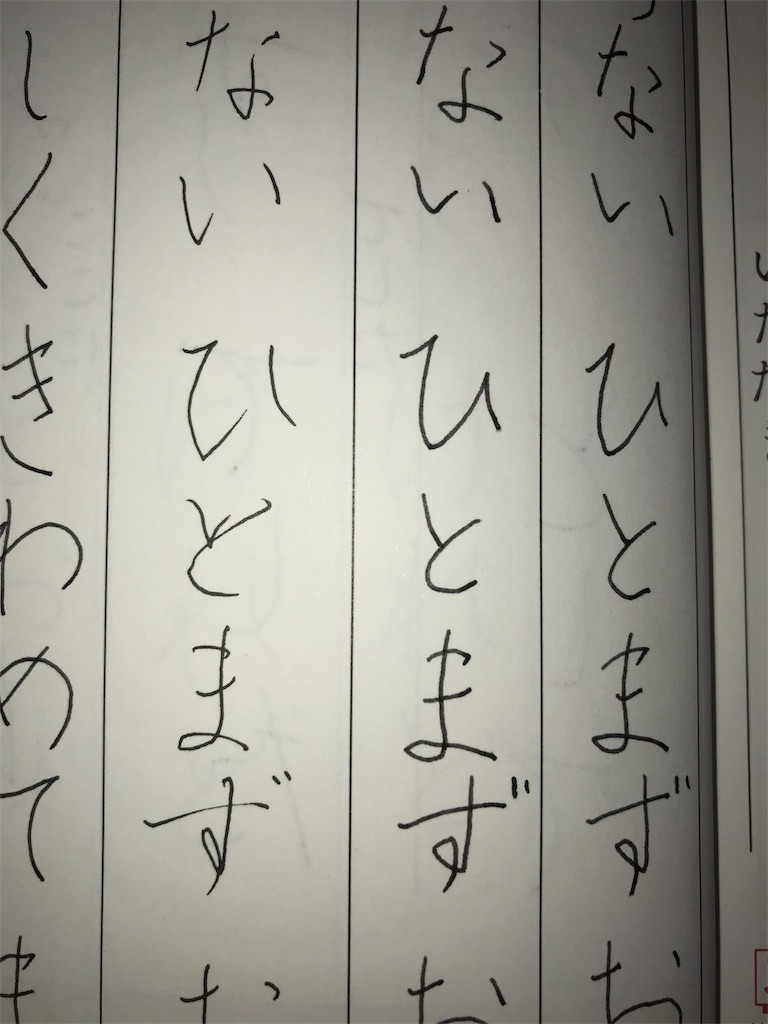 ないひとまずな
ないひとまずな
ないひとまずな
しくきわめてき